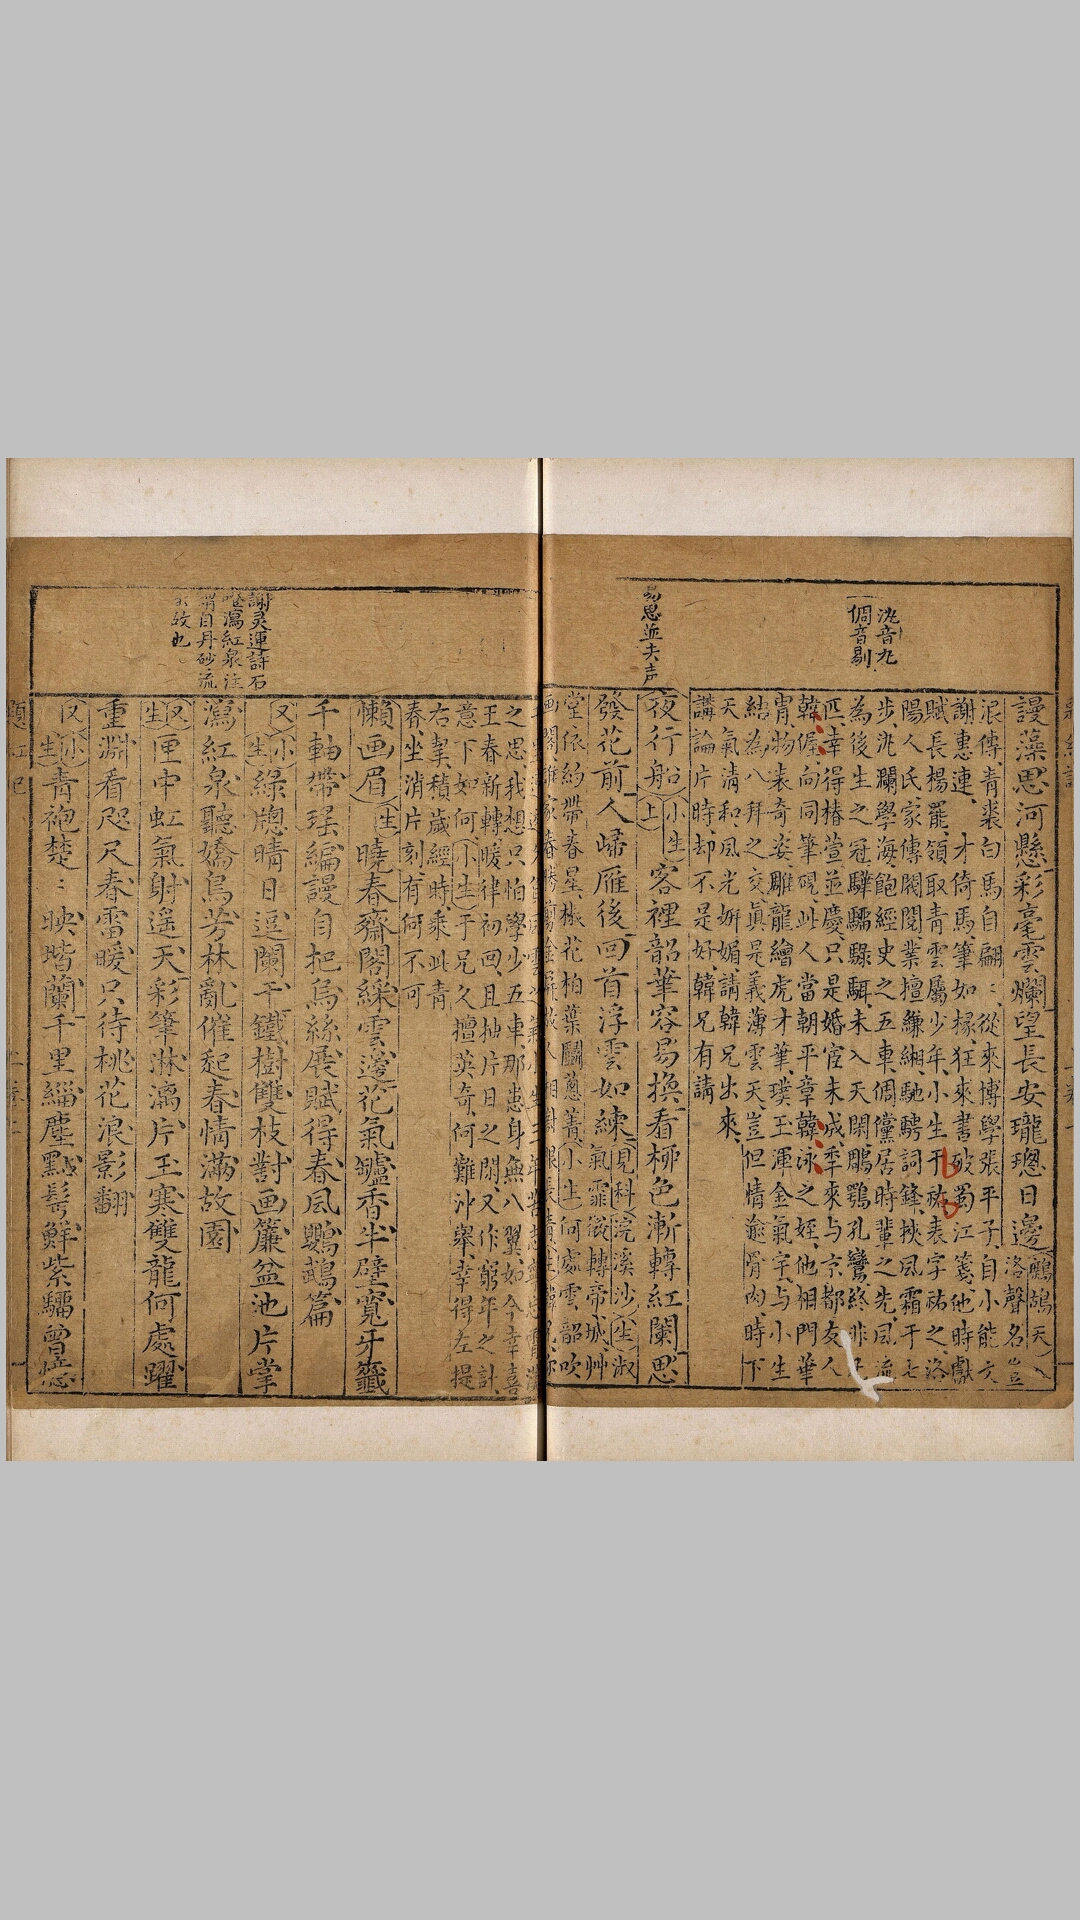 洮音九
倜音剔
易思並去声
謾藻思河懸彩毫雲爛望長安瓏璁日邊(鷓鴣天)
洛聲名豈
浪傳青裘白馬自翩〻從來博學張平子自小能文
謝惠連才倚馬筆如椽狂來書破蜀江箋他時獻
賦長楊罷領取青雲屬少年小生于祐表字祐之洛
陽人氏家傳閥閱業擅縑緗馳騁詞鋒挾風霜于七
步洮瀾學海飽經史之五車倜儻居時輩之先風流
為後生之冠驊騮騄駬未入天閑鵰鶚孔鸞終非
匹幸得椿萱並慶只是婚宦未成季來与京都友人
韓偓向同筆硯此人當朝平章韓泳之姪他相門華
胄物表奇姿雕龍繪虎才華璞玉渾金氣宇与小生
結為八拜之交真是義薄雲天豈但情逾骨肉時下
天氣清和風光姸媚請韓兄出來
講論片時却不是好韓兄有請
夜行船(上)(小生)客裡韶華容易換看柳色漸轉紅闌思
發花前人歸雁後回首浮雲如練(見科)(浣溪沙)(生)淑
氣霏微轉帝城艸
堂依約帶春星椒花柏葉鬬葱菁(小生)何處雲韶吹
謝灵運詩石
唯瀉紅泉注
謂自丹砂流
出故也
之思我想只怕學少五車那患身無八翼如今幸喜
王春新轉暖律初回且抽片日之閒又作窮年之計
意下如何(小生)于兄久擅英奇何難沖舉幸得左提
右挈積歲經時乘此青
春坐消片刻有何不可
懶画眉(生)曉春齋閣綵雲邊花氣罏香半壁寬牙籤
千軸帶瑶編謾自把烏絲展賦得春風鸚鵡篇
(又)(小生)綠牕晴日逗闌干鐵樹雙枝對画簾盆池片掌
瀉紅泉聽嬌鳥芳林亂催起春情滿故園
(又)(生)匣中虹氣射遥天彩筆淋漓片玉寒雙龍何處躍
重淵看咫尺春雷暖只待桃花浪影翻
(又)(小生)青袍楚〻映堦蘭千里緇塵點髩鮮紫騮曾憶
題紅記